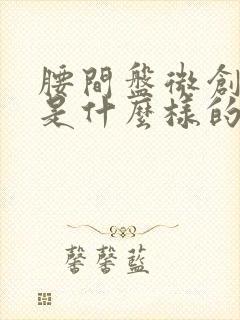 腰間盤微創
是什麼樣的
馨馨藍